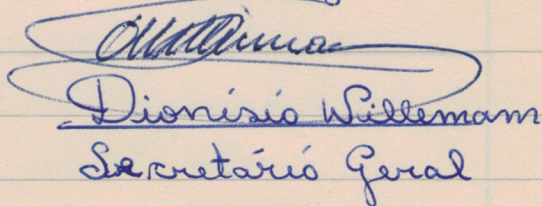 Dionísio Willemann
Secretário Geral